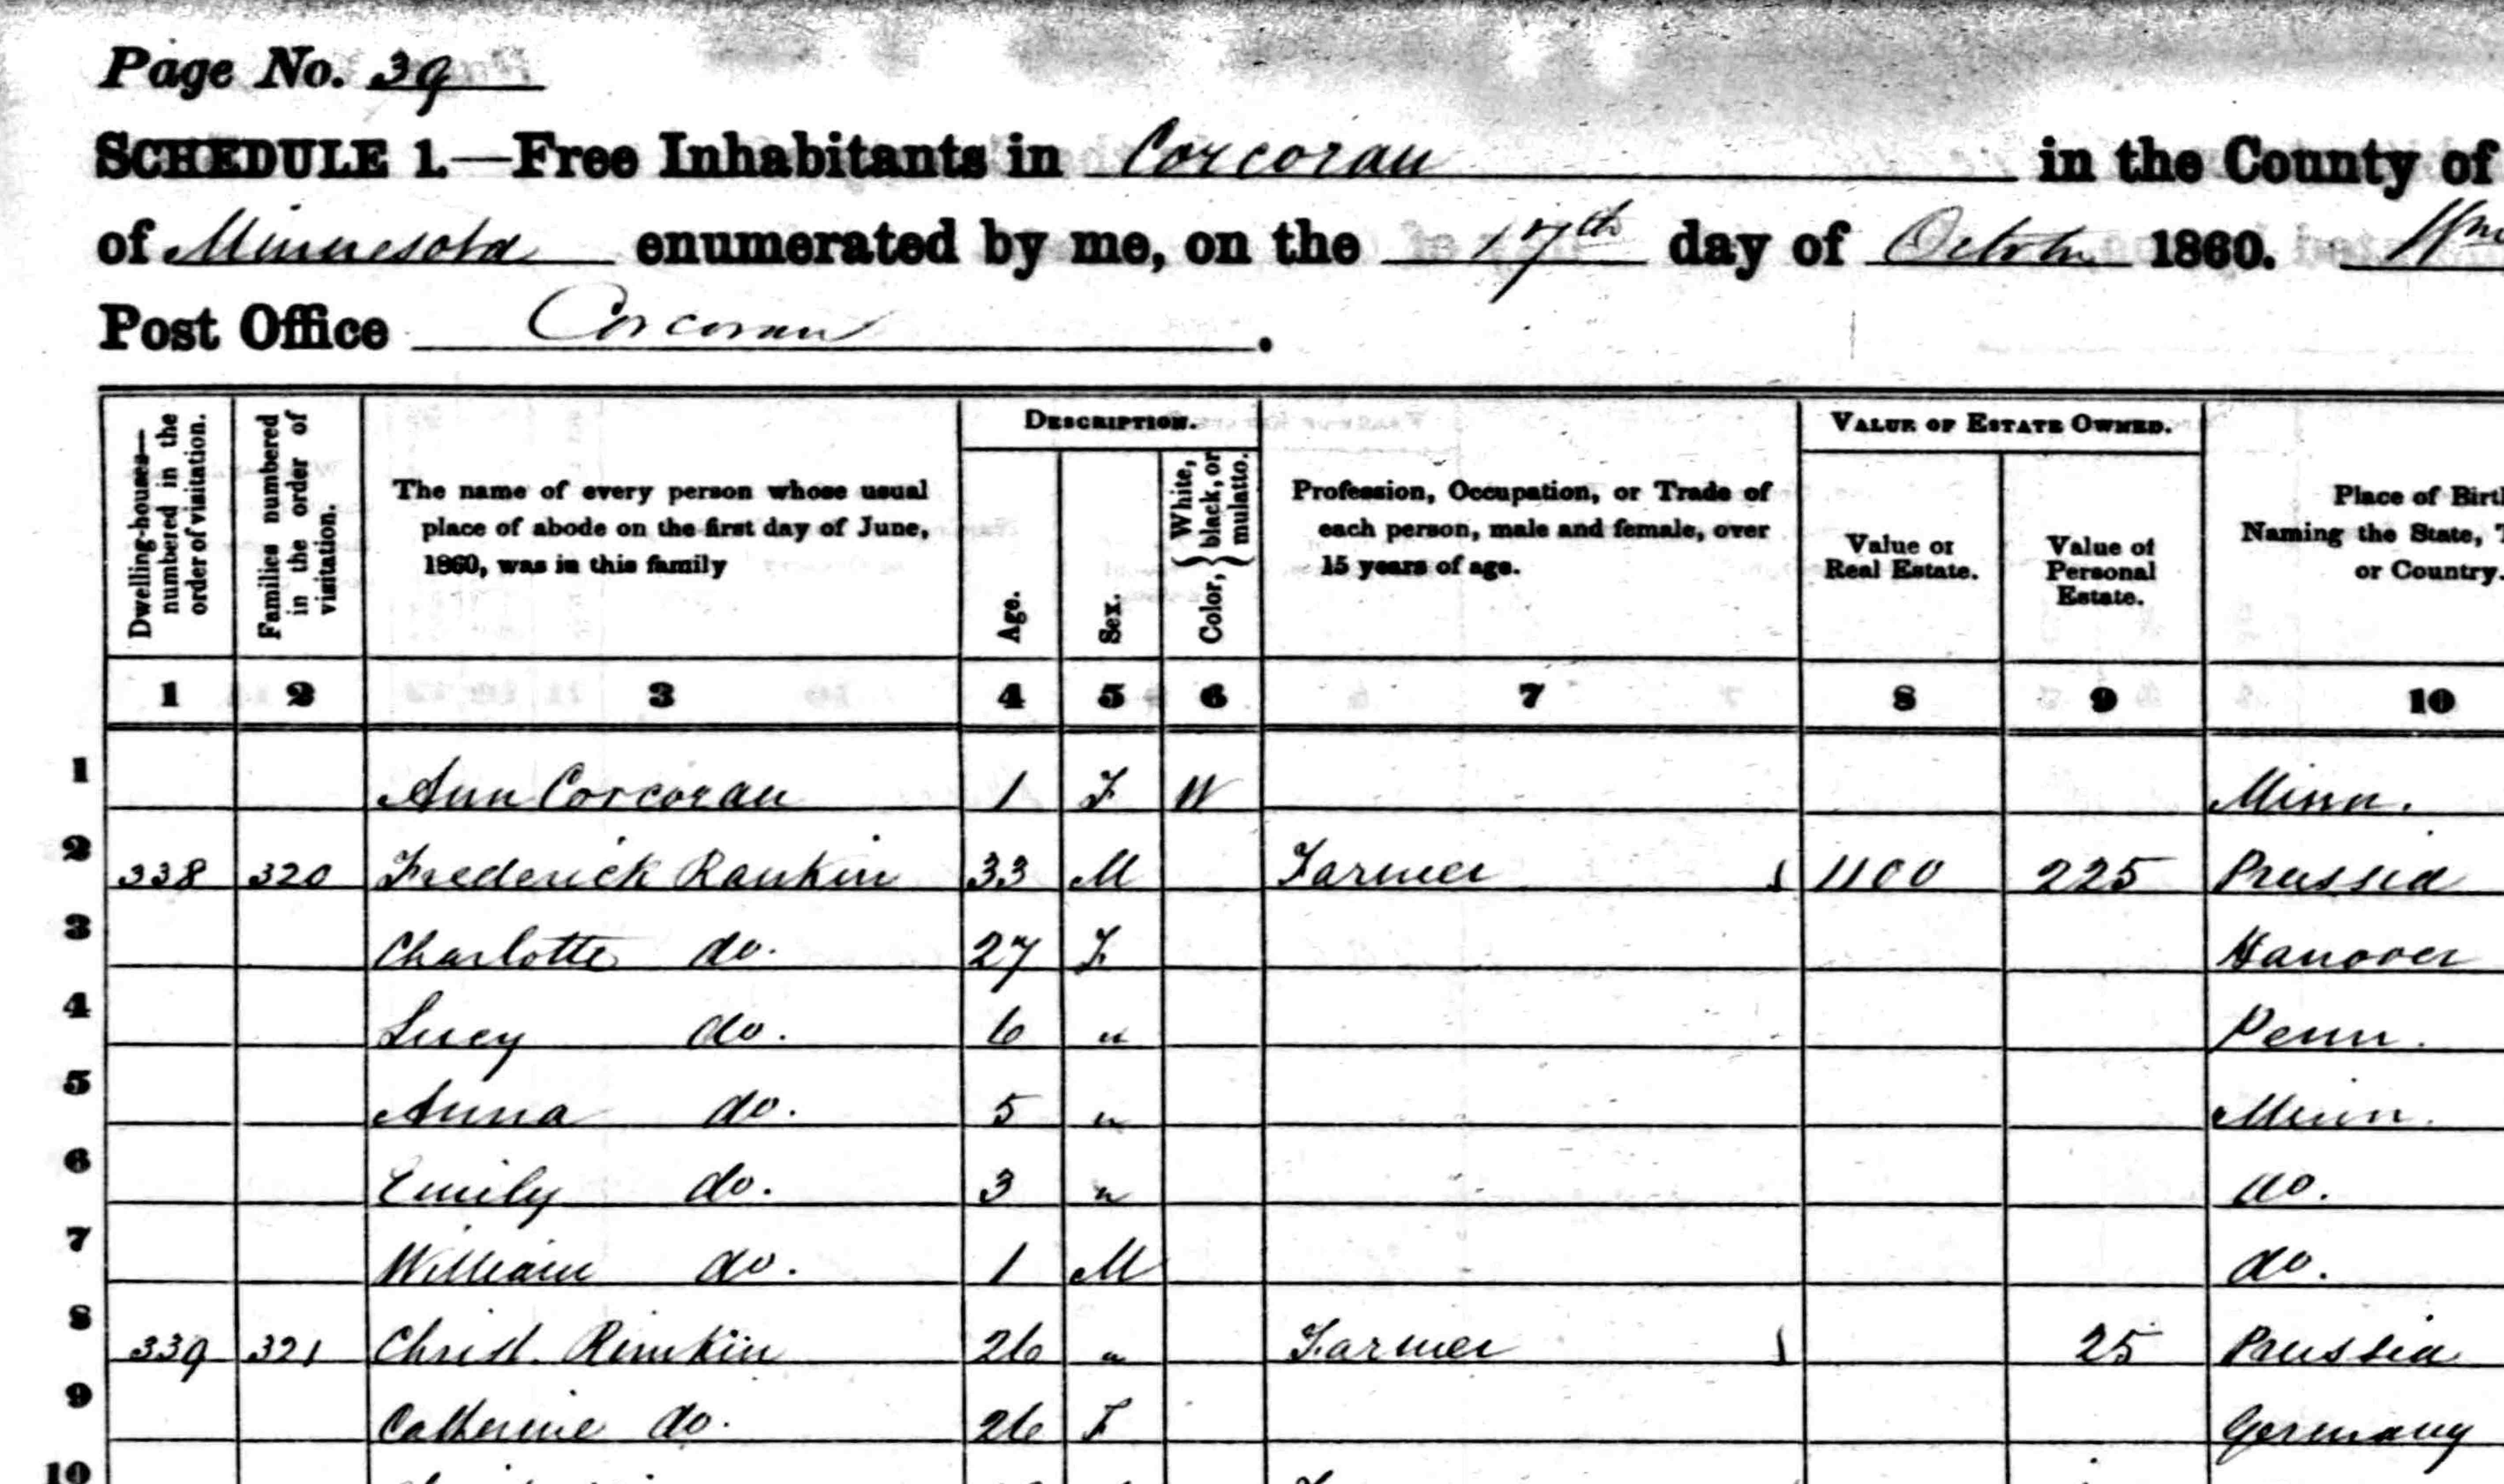 Page No. 39
SCHEDULE 1.—Free Inhabitants in Corcoran in the County of
of Minnesota enumerated by me, on the 17th day of October 1860. Wm
Post Office Corcoran.
Dwelling-houses—numbered in the order of visitation.
Families numbered in the order of visitation.
The name of every person whose usual place of abode on the first day of June, 1860, was in this family
DESCRIPTION.
Age.
Sex.
Color, { White, black, or mulatto. }
Profession, Occupation, or Trade of each person, male and female, over 15 years of age.
VALUE OF ESTATE OWNED.
Value of Real Estate.
Value of Personal Estate.
Place of Birth
Naming the State,
or Country.
1 2 3 4 5 6 7 8 9 10
1 Ann Corcoran 1 F W Minn.
2 338 320 Frederick Rankin 33 M Farmer 1100 225 Prussia
3 Charlotte do. 27 F Hanover
4 Lucy do. 6 " Penn.
5 Anna do. 5 " Minn.
6 Emily do. 3 " do.
7 William do. 1 M do.
8 339 321 Christ. Rimkin 26 " Farmer 25 Prussia
9 Catherine do. 26 F Germany
10